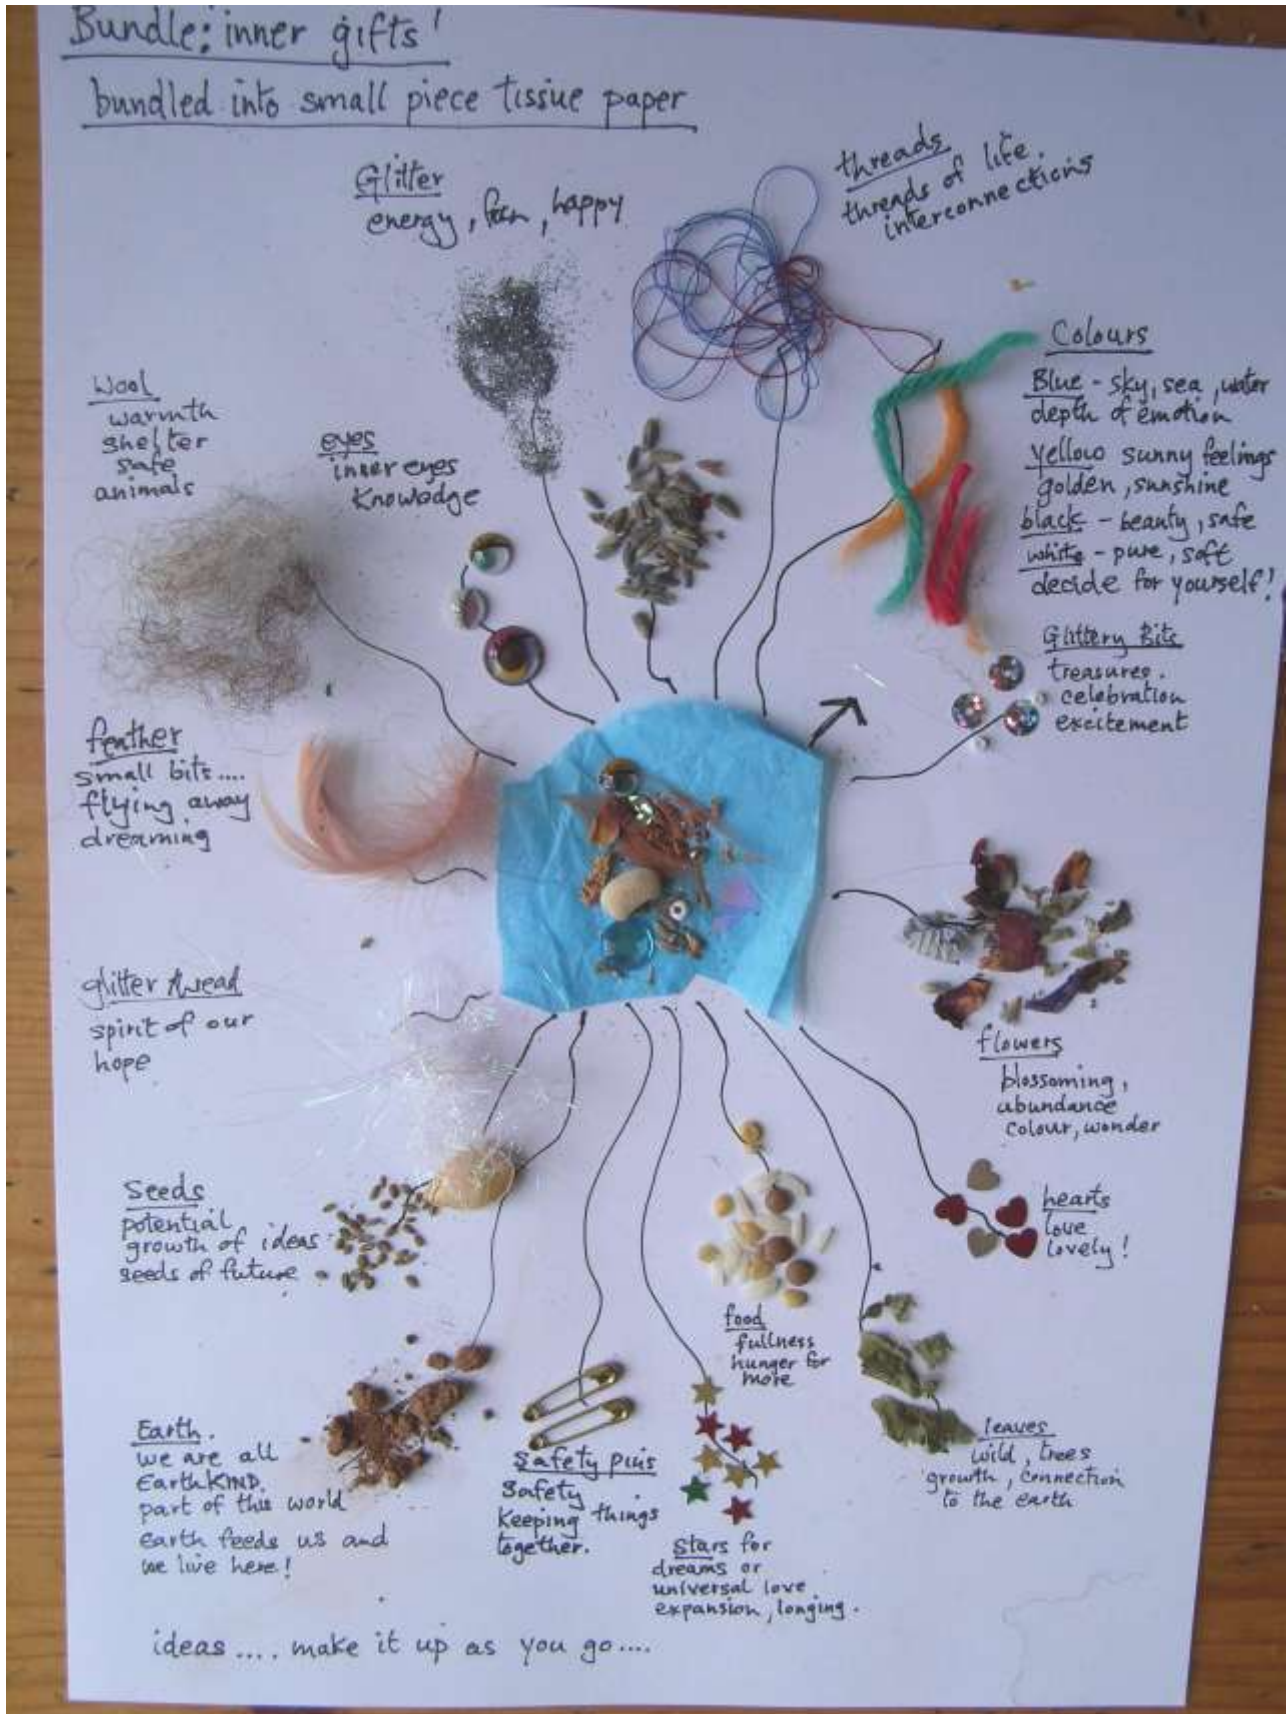 Bundle: inner gifts!
bundled into small piece tissue paper
Glitter
energy, fun, happy
threads
threads of life.
interconnections
Colours
Blue - sky, sea, water
depth of emotion
yellow sunny feelings
golden, sunshine
black - beauty, safe
white - pure, soft
decide for yourself!
Wool
warmth
shelter
safe
animals
eyes
inner eyes
Knowladge
Glittery Bits
treasures.
celebration
excitement
feather
small bits....
flying away
dreaming
glitter thread
spirit of our
hope
flowers
blossoming,
abundance
colour, wonder
Seeds
potential
growth of ideas
seeds of future
hearts
love
lovely!
food
fullness
hunger for
more
Earth.
we are all
EarthKIND.
part of this world
Earth feeds us and
we live here!
Safety pins
Safety
Keeping things
together.
Stars for
dreams or
universal love
expansion, longing.
leaves
wild, trees
growth, connection
to the earth
ideas .... make it up as you go....